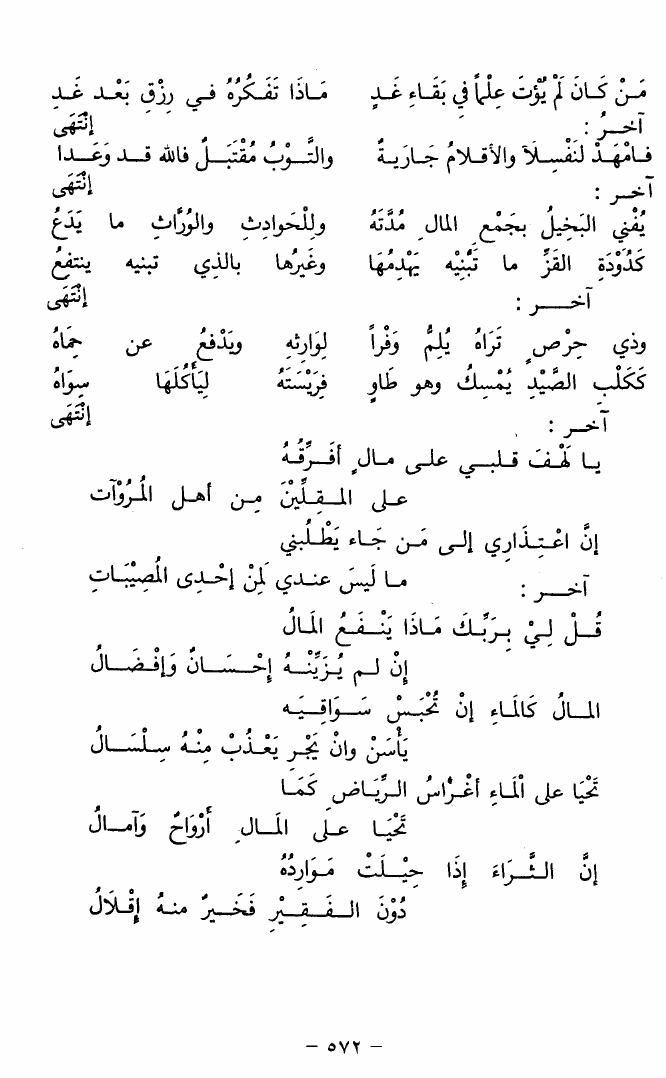 مَنْ كَانَ لَمْ يُؤْتَ عِلْماً في بَقَاءِ غَـدٍ مَـاذَا تَفَـكُّرُهُ فـي رِزْقِ بَعْـد غَـدِ
إِنْتَهَى
آخــرُ :
فـامْهَـدْ لنَفْسِـلاَ والأقـلامُ جَـاريَـةٌ والتَّـوْبُ مُقْتَبَـلٌ فالله قـد وَعَـدا
إِنْتَهَى
آخــر :
يُفْني البَخيلُ بجَمْعِ المال مُدَّتَهُ وللْحَوادِثِ والوُرَّاثِ ما يَدَعُ
كَدُوْدَةِ القَزِّ ما تَبْنِيْه يَهْدِمُهَا وغَيْرُها بالذي تبنيه ينتفعُ
إِنْتَهَى
آخــر :
وذي حِرْصٍ تَرَاهُ يُلِمُّ وَفْراً لِوَارِثهِ ويَدْفَعُ عن حِمَاهُ
كَكَلْبِ الصَّيْدِ يُمْسِكُ وهو طَاوٍ فِرَيْسَتَهُ لِيَأْكُلَهَا سِوَاهُ
إِنْتَهَى
آخــر :
يـا لَهْفَ قـلبـي علـى مـالٍ أفَـرِّقُـهُ
علـى المـقِـلِّيْنَ مِـن أهـل المُرُوْآت
إنَّ اعْـتِـذَارِي إلـى مَـن جَـاء يَطْـلُبنِي
مـا لَيسَ عنـدي لَمِنْ إحْـدِى المُصِيْبَـاتِ
آخــر :
قُـلْ لِيْ بِـرَبِّـكَ مَـاذَا يَنْـفَـعُ المَـالُ
إنْ لـم يُـزَيِّنْـهُ إحْـسَـانٌ وَإِفْـضَـالُ
المـالُ كَالمَـاءِ إنْ تُحْبَـسْ سَـوَاقِيَـه
يَأْسَنْ وانْ يَجْرِ يَعْذُبْ مِنْهُ سِلْسَـالُ
تَحْيَا على الْمَاءِ أغْـرَاسُ الـرِّيَـاضِ كَمَـا
تَحْيَـا علـى المَـالِ أَرْوَاحٌ وَآمـالُ
إنَّ الـثَّـرَاءَ إِذَا حِيْـلَـتْ مَـوَارِدُهُ
دُوْنَ الـفَـقِـيْرِ فَخَـيرٌ منـهُ إِقْـلَالُ
– ٥٧٢ –